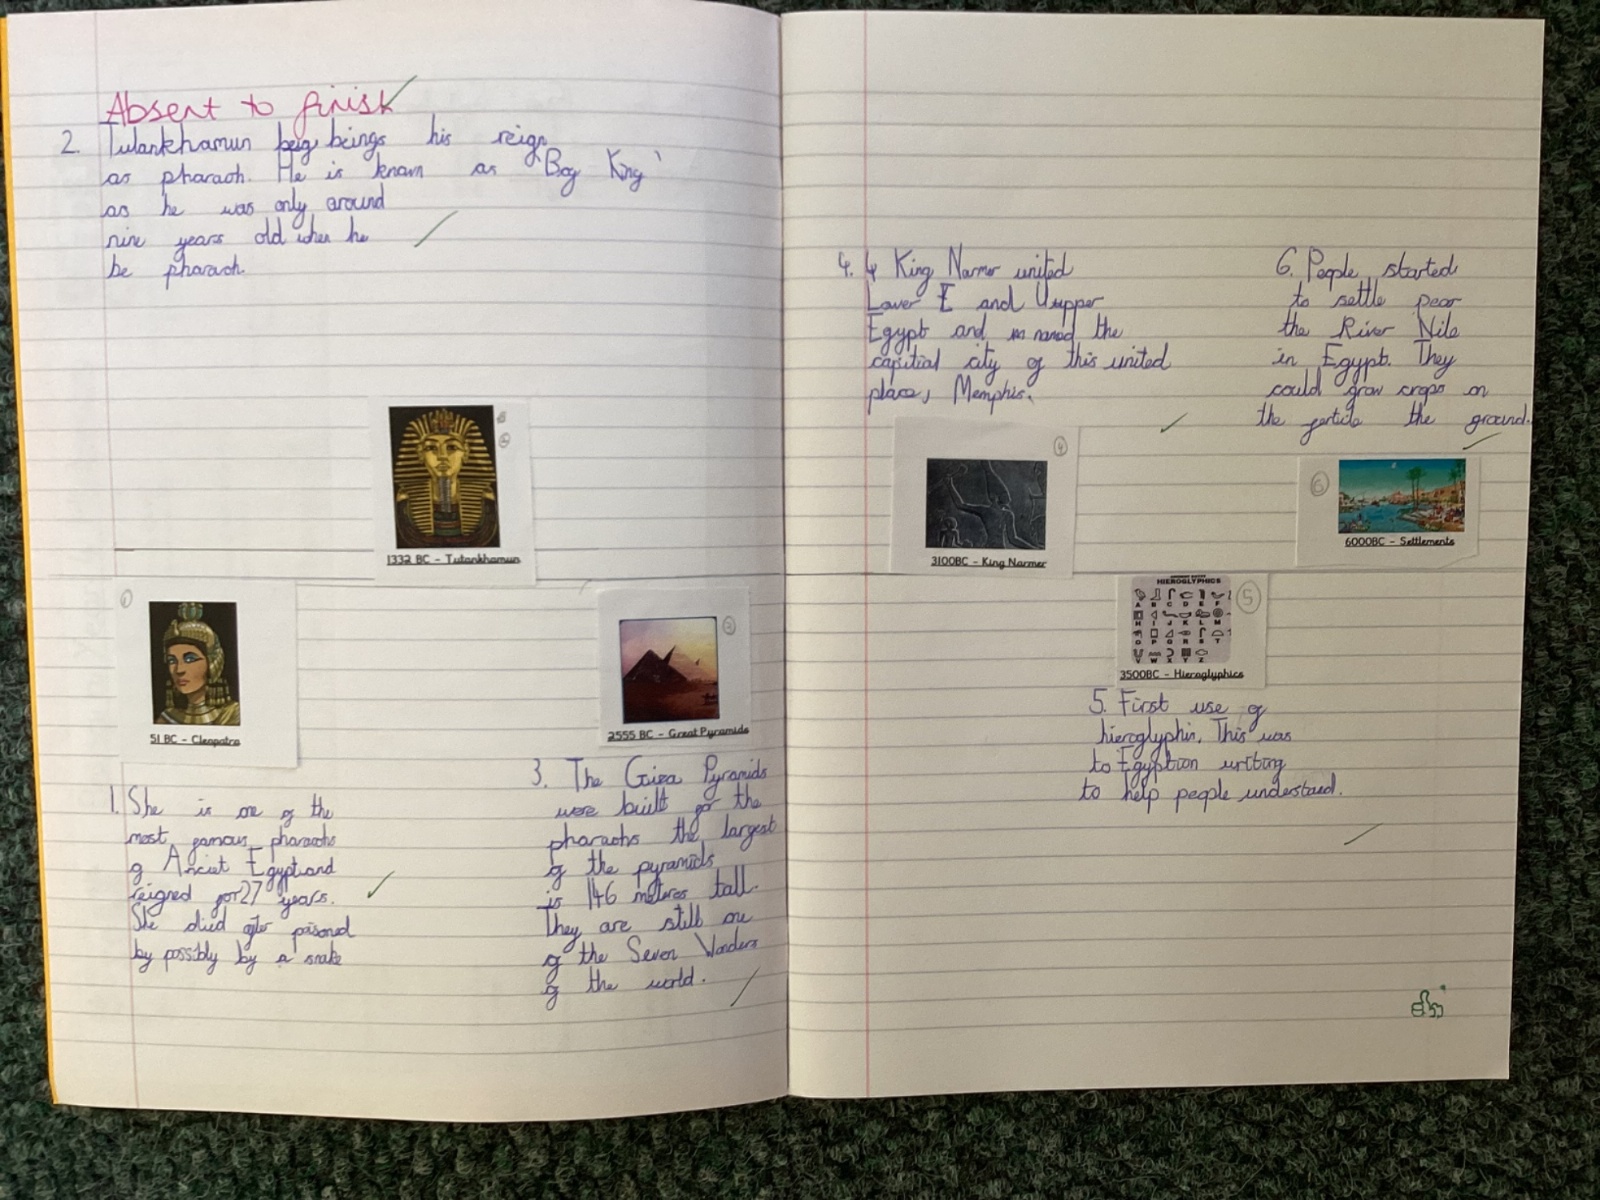 Absent to finish
2. Tutankhamun beg beings his reign
as pharaoh. He is known as 'Boy King'
as he was only around
nine years old when he
be pharaoh.
1332 BC - Tutankhamun
51 BC - Cleopatra
2555 BC - Great Pyramids
1. She is one of the
most famous pharaohs
of Anciet Egypt and
reigned for 27 years.
She died after poisoned
by possibly by a snake
3. The Giza Pyramids
were built for the
pharaohs the largest
of the pyramids
is 146 metres tall.
They are still one
of the Seven Wonders
of the world.
4. 4 King Narmer united
Lower E and Uupper
Egypt and named the
capitial city of this united
place, Memphis.
4
3100BC - King Narmer
6. People started
to settle near
the River Nile
in Egypt. They
could grow crops on
the the ground.
6
6000BC - Settlements
HIEROGLYPHICS
A B C D E F
H I J K L M
O P Q R S T
V W X Y Z
5
3500BC - Hieroglyphics
5. First use of
hieroglyphis. This was
to Egyption writing
to help people understand.